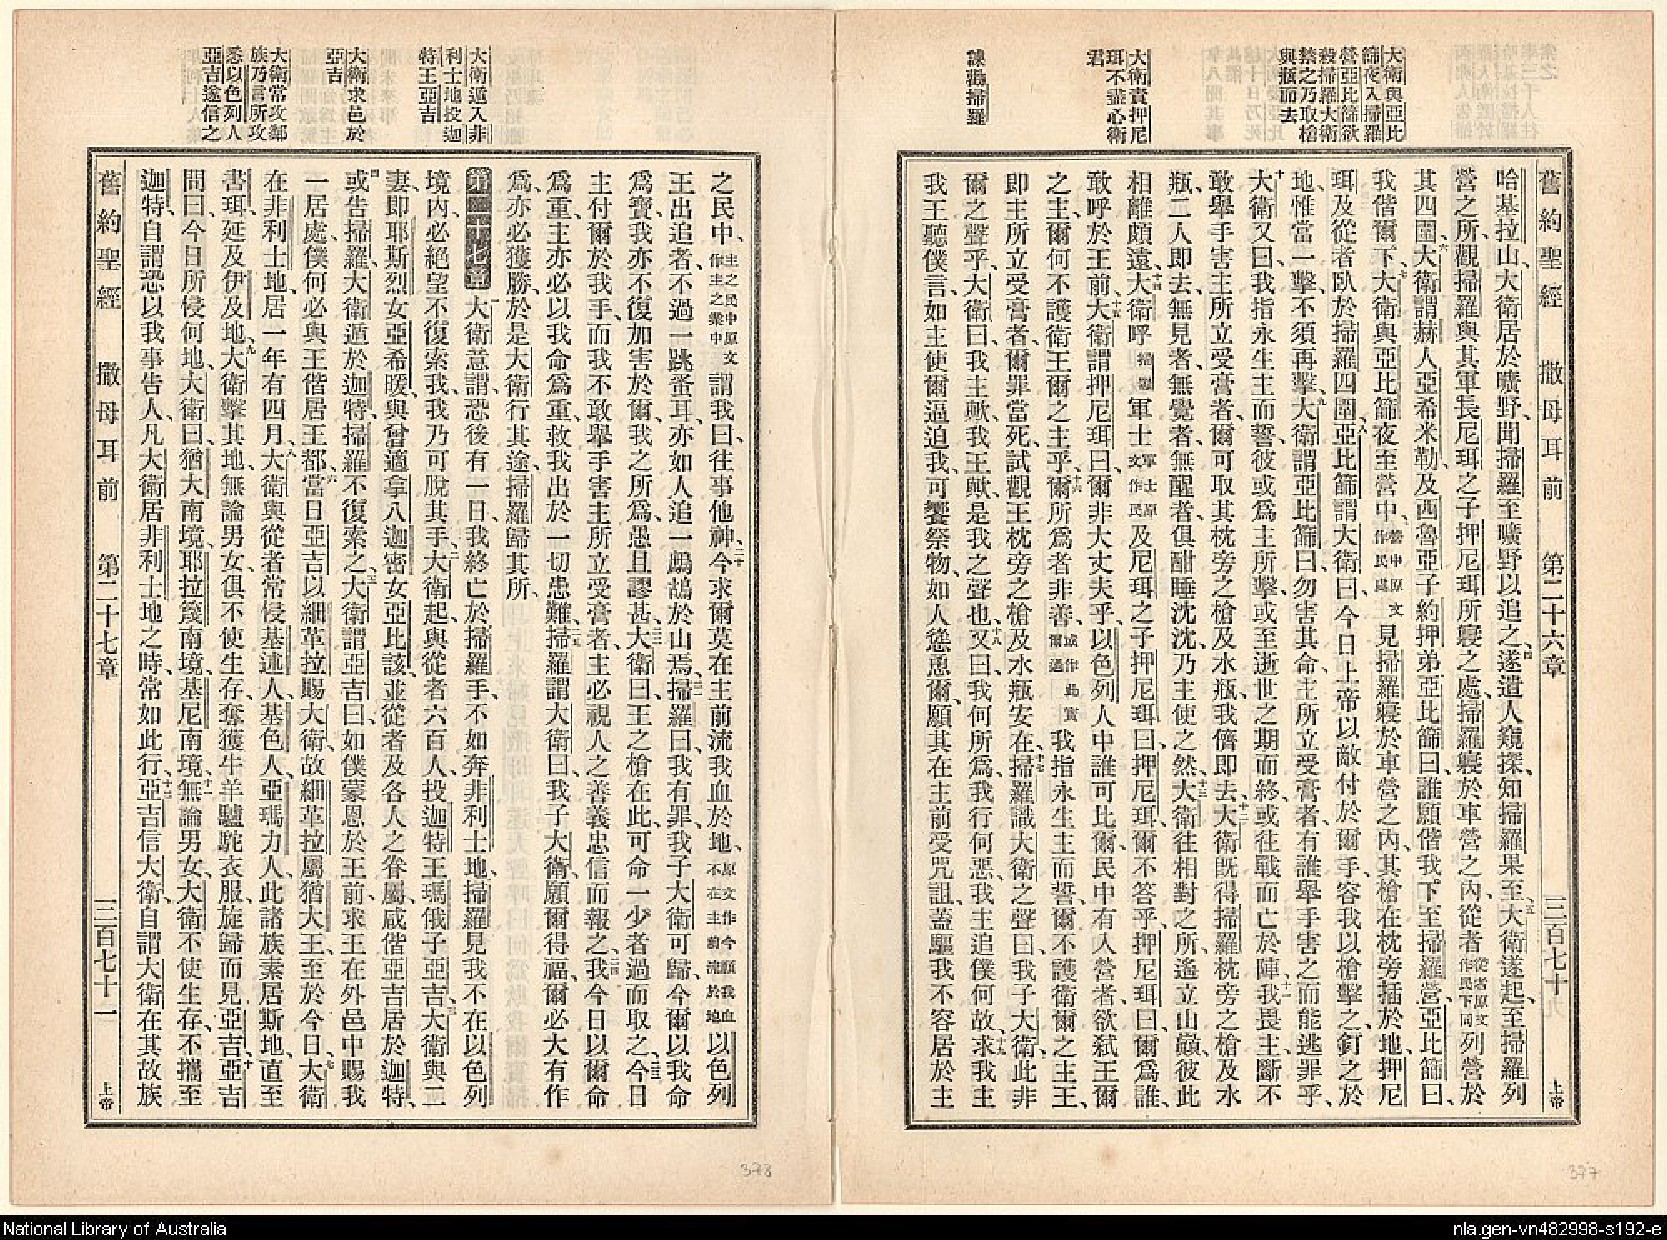 大衛與亞比
篩夜入掃羅
營亞比篩欲
殺掃羅大衛
禁之乃取槍
與瓶而去
大衛責押尼
珥不盡心衛
君
諫強掃羅
舊約聖經 撒母耳前 第二十六章 三百七十 上帝
哈基拉山、大衛居於曠野、聞掃羅至曠野以追之、遂遣人窺探、知掃羅果至、大衛遂起、至掃羅列
營之所、觀掃羅與其軍長尼珥之子押尼珥所寢之處、掃羅寢於車營之內、從者從者原文作民下同列營於
其四圍、大衛謂赫人亞希米勒、及西魯亞子約押弟亞比篩曰、誰願偕我下至掃羅營、亞比篩曰、
我偕爾下、大衛與亞比篩夜至營中、營中原文作民處見掃羅寢於車營之內、其槍在枕旁插於地、押尼
珥及從者臥於掃羅四圍、亞比篩謂大衛曰、今日上帝以敵付於爾手、容我以槍擊之、釘之於
地、惟當一擊、不須再擊、大衛謂亞比篩曰、勿害其命、主所立受膏者、有誰舉手害之、而能逃罪乎、
大衛又曰、我指永生主而誓、彼或為主所擊、或至逝世之期而終、或往戰而亡於陣、我畏主、斷不
敢舉手害主所立受膏者、爾可取其枕旁之槍及水瓶、我儕即去、大衛既得掃羅枕旁之槍及水
瓶、二人即去、無見者、無覺者、無醒者、俱酣睡沈沈、乃主使之然、大衛往相對之所、遙立山巔、彼此
相離頗遠、大衛呼掃羅軍士軍士原文作民及尼珥之子押尼珥曰、押尼珥、爾不答乎、押尼珥曰、爾為誰、
敢呼於王前、大衛謂押尼珥曰、爾非大丈夫乎、以色列人中誰可比爾、民中有人營者、欲弒王爾
之主、爾何不護衛王爾之主乎、爾所為者非善、我指永生主而誓、爾不護衛爾之主王、
即主所立受膏者、爾罪當死、試觀王枕旁之槍及水瓶安在、掃羅識大衛之聲曰、我子大衛、此非
爾之聲乎、大衛曰、我主歟、我王歟、是我之聲也、又曰、我何所為、我行何惡、我主追僕何故、求我主
我王聽僕言、如主使爾逼迫我、可饗祭物、如人慫恿爾、願其在主前受咒詛、蓋驅我不容居於主
377
大衛遁入非
利士地投迦
特王亞吉
大衛求邑於
亞吉
大衛常攻鄰
族乃言所攻
悉以色列人
亞吉遂信之
之民中、主之民中原文作主之業中謂我曰、往事他神、今求爾莫在主前流我血於地、原文作今願我血不在主前流於地以色列
王出追者、不過一跳蚤耳、亦如人追一鷓鴣於山焉、掃羅曰、我有罪、我子大衛可歸、今爾以我命
為寶、我亦不復加害於爾、我之所為、愚且謬甚、大衛曰、王之槍在此、可命一少者過而取之、今日
主付爾於我手、而我不敢舉手害主所立受膏者、主必視人之善義忠信而報之、我今日以爾命
為重、主亦必以我命為重、救我出於一切患難、掃羅謂大衛曰、我子大衛、願爾得福、爾必大有作
為、亦必獲勝、於是大衛行其途、掃羅歸其所、
第二十七章 大衛意謂、恐後有一日、我終亡於掃羅手、不如奔非利士地、掃羅見我不在以色列
境內、必絕望不復索我、我乃可脫其手、大衛起、與從者六百人、投迦特王瑪俄子亞吉、大衛與二
妻、即耶斯烈女亞希暖、與曾適拿八迦密女亞比該、並從者及各人之眷屬、咸偕亞吉居於迦特、
或告掃羅、大衛遁於迦特、掃羅不復索之、大衛謂亞吉曰、如僕蒙恩於王前、求王在外邑中賜我
一居處、僕何必與王偕居王都、當日亞吉以細革拉賜大衛、故細革拉屬猶大王、至於今日、大衛
在非利士地、居一年有四月、大衛與從者常侵基述人、基色人、亞瑪力人、此諸族素居斯地、直至
書珥、延及伊及地、大衛擊其地、無論男女、俱不使生存、奪獲牛羊驢駝衣服、旋歸而見亞吉、亞吉
問曰、今日所侵何地、大衛曰、猶大南境、耶拉篾南境、基尼南境、無論男女、大衛不使生存、不攜至
迦特、自謂恐以我事告人、凡大衛居非利士地之時、常如此行、亞吉信大衛、自謂大衛在其故族
舊約聖經 撒母耳前 第二十七章 三百七十一 上帝
378
National Library of Australia
nla.gen-vn482998-s192-e